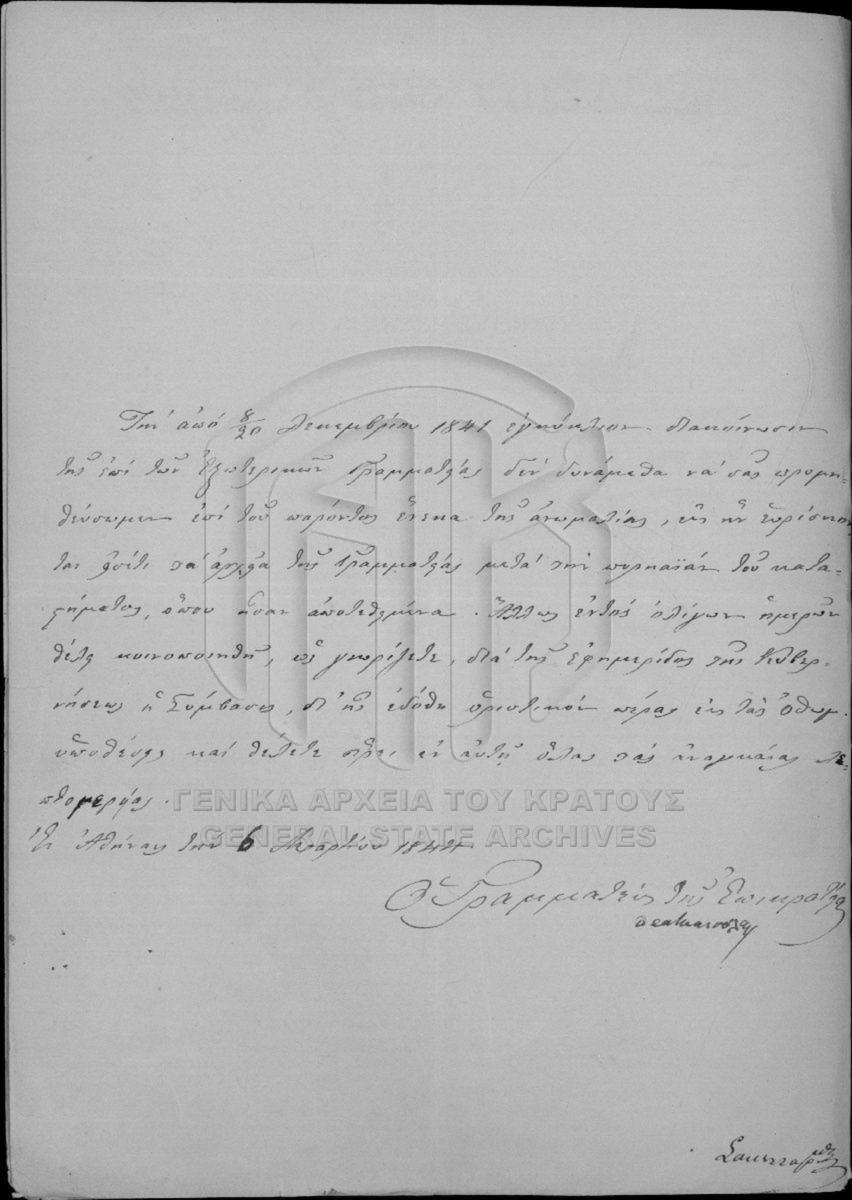 Τὴν ἀπὸ 8/20 Δεκεμβρίου 1841 ἐγκύκλιον διακοίνωσιν
τῆς ἐπὶ τῶν Ἐξωτερικῶν Γραμματείας δὲν δυνάμεθα νὰ σᾶς προμη-
θεύσωμεν ἐπὶ τοῦ παρόντος ἕνεκα τῆς ἀνωμαλίας, εἰς ἣν εὑρίσκον
ται ἔτι τὰ ἀρχεῖα τῆς Γραμματείας μετὰ τὴν πυρκαϊὰν τοῦ κατα-
στήματος, ὅπου ἦσαν ἀποτεθειμένα. Ἄλλως ἐντὸς ὀλίγων ἡμερῶν
θέλει κοινοποιηθῆ, ὡς γνωρίζετε, διὰ τῆς Ἐφημερίδος τῆς Κυβερ-
νήσεως ἡ Σύμβασις, δι' ἧς ἐδόθη ὁριστικὸν πέρας εἰς τὰς Ὀθωμ.
ὑποθέσεις καὶ θέλετε εὕρει ἐν αὐτῇ ὅλας τὰς ἀναγκαίας λε-
πτομερείας.
ΓΕΝΙΚΑ ΑΡΧΕΙΑ ΤΟΥ ΚΡΑΤΟΥΣ
GENERAL STATE ARCHIVES
Ἐν Ἀθήναις τὴν 6 Μαρτίου 1844
Ὁ Γραμματεὺς τῆς Ἐπικρατείας